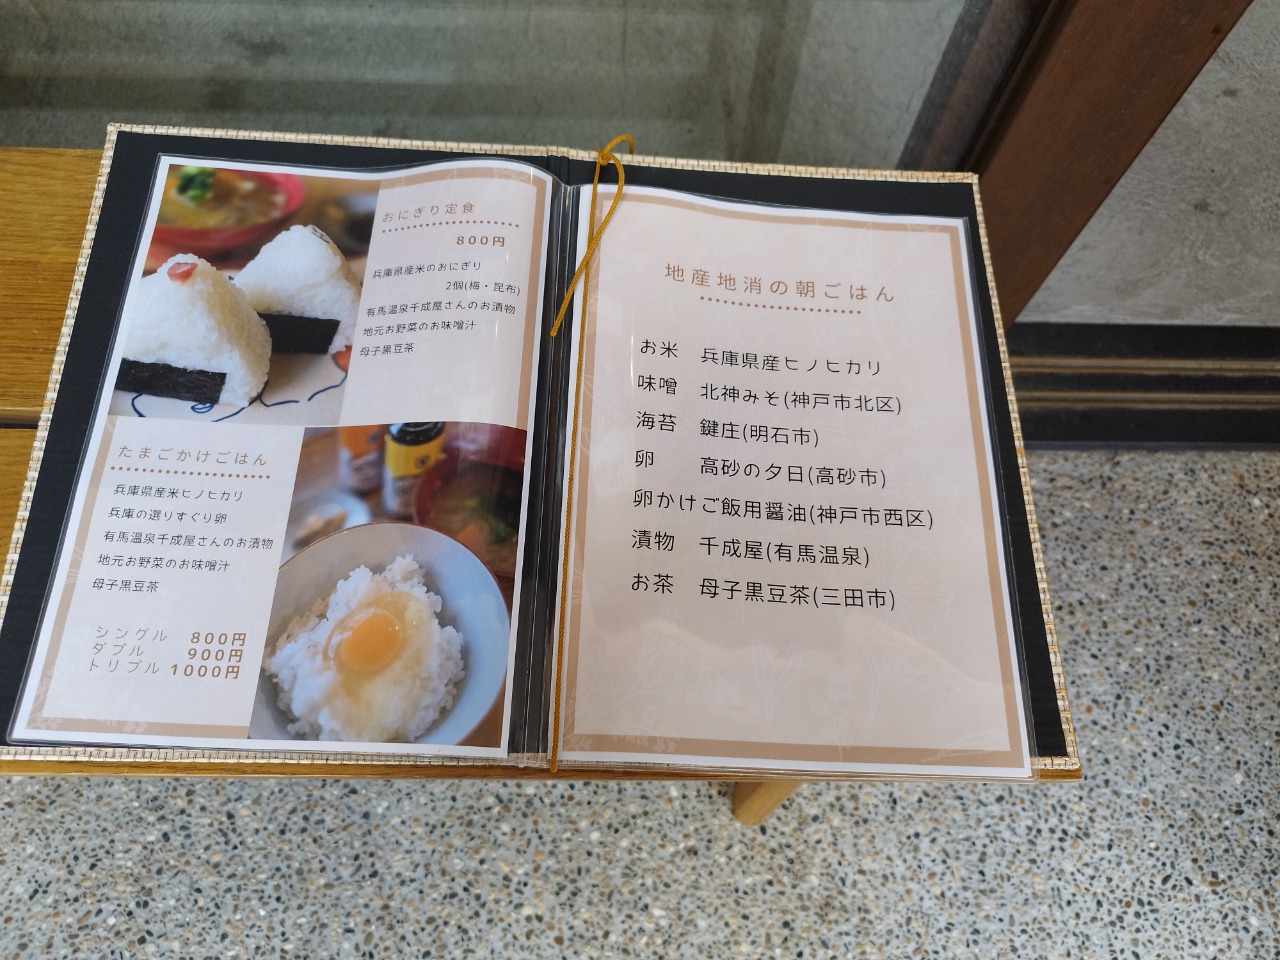 おにぎり定食
800円
兵庫県産米のおにぎり
2個(梅・昆布)
有馬温泉千成屋さんのお漬物
地元お野菜のお味噌汁
母子黒豆茶
たまごかけごはん
兵庫県産米ヒノヒカリ
兵庫の選りすぐり卵
有馬温泉千成屋さんのお漬物
地元お野菜のお味噌汁
母子黒豆茶
シングル 800円
ダブル 900円
トリプル 1000円
地産地消の朝ごはん
お米 兵庫県産ヒノヒカリ
味噌 北神みそ(神戸市北区)
海苔 鍵庄(明石市)
卵 高砂の夕日(高砂市)
卵かけご飯用醤油(神戸市西区)
漬物 千成屋(有馬温泉)
お茶 母子黒豆茶(三田市)